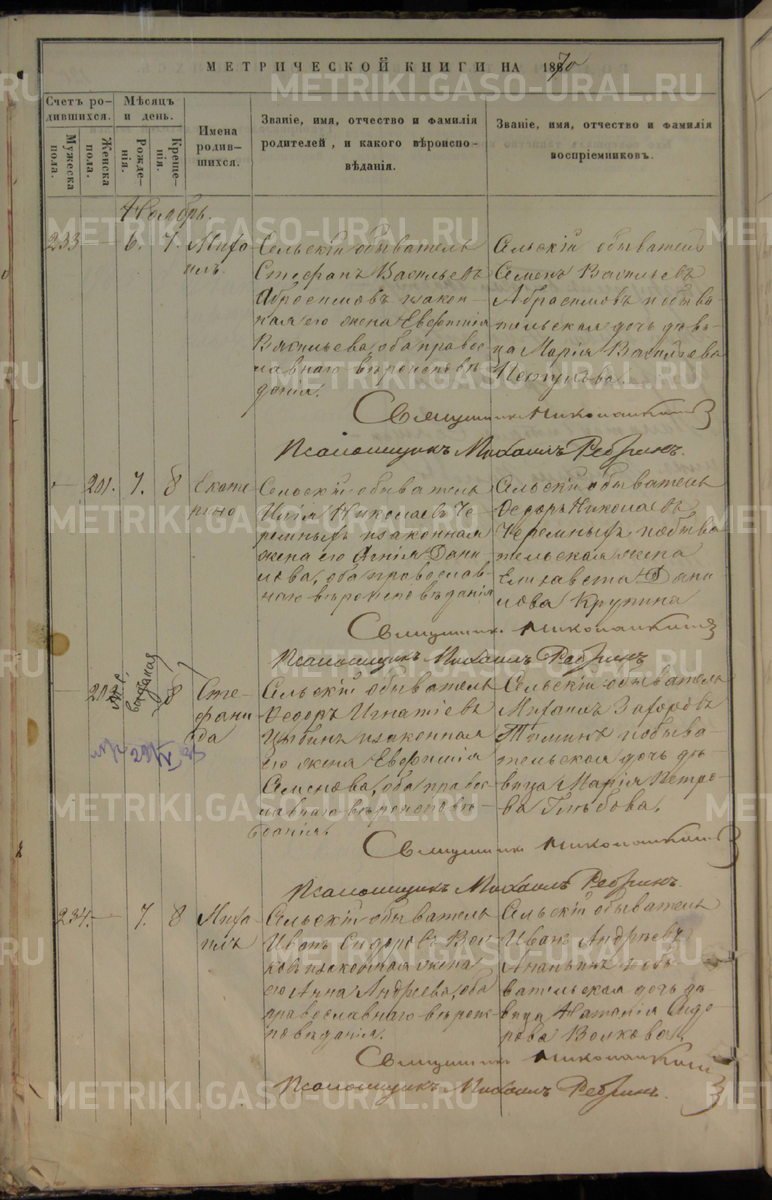 МЕТРИЧЕСКОЙ КНИГИ НА 1870
Счетъ родившихся.
Мужеска пола.
Женска пола.
Мѣсяцъ и день.
Рожденія.
Крещенія.
Имена родившихся.
Званіе, имя, отчество и фамилія
родителей, и какого вѣроиспо-
вѣданія.
Званіе, имя, отчество и фамилія
воспріемниковъ.
Ноябрь.
233 6. 7. Миха-
илъ
Сельскій обыватель
Стефанъ Васильевъ
Абросимовъ и закон-
ная его жена Евфимія
Васильева, оба правос-
лавнаго вѣроисповѣ-
данія.
Сельскій обыватель
Семенъ Васильевъ
Абрасимовъ и обыва-
тельская дочь дѣви-
ца Марія Васильева
Священникъ
Псаломщикъ Михаилъ Ребринъ.
201. 7. 8 Екате-
рина
Сельскій обыватель
Николаевъ Че-
ремныхъ и законная
жена его Агнія Дани-
лова, оба православ-
наго вѣроисповѣданія
Сельскій обыватель
Ѳедоръ Николаевъ
Черемныхъ и обыва-
тельская жена
Елисавета Дани-
лова Крупина
Священникъ
Псаломщикъ Михаилъ Ребринъ
8 Сте-
фани-
да
Сельскій обыватель
Ѳедоръ Игнатіевъ
Цыбинъ и законная
его жена Евфимія
Семенова, оба правос-
лавнаго вѣроисповѣ-
данія.
Сельскій обыватель
Михаилъ
и обыва-
тельская дочь дѣ-
вица Марія Петро-
ва Глѣбова.
Священникъ
Псаломщикъ Михаилъ Ребринъ.
234. 7. 8 Миха-
илъ
Сельскій обыватель
Иванъ Сидоровъ Вол-
ковъ и законная жена
его Анна Андреева, оба
православнаго вѣрои-
сповѣданія.
Сельскій обыватель
Иванъ Андреевъ
Ананьинъ и обы-
вательская дочь дѣ-
вица Наталія Сидо-
рова Волкова.
Священникъ
Псаломщикъ Михаилъ Ребринъ.
METRIKI.GASO-URAL.RU